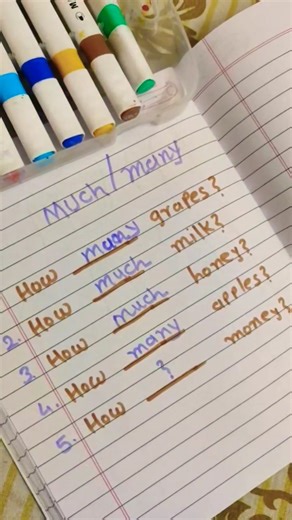 Much/many
How many grapes?
2. How much milk?
3. How much honey?
4. How many apples?
5. How ? money?